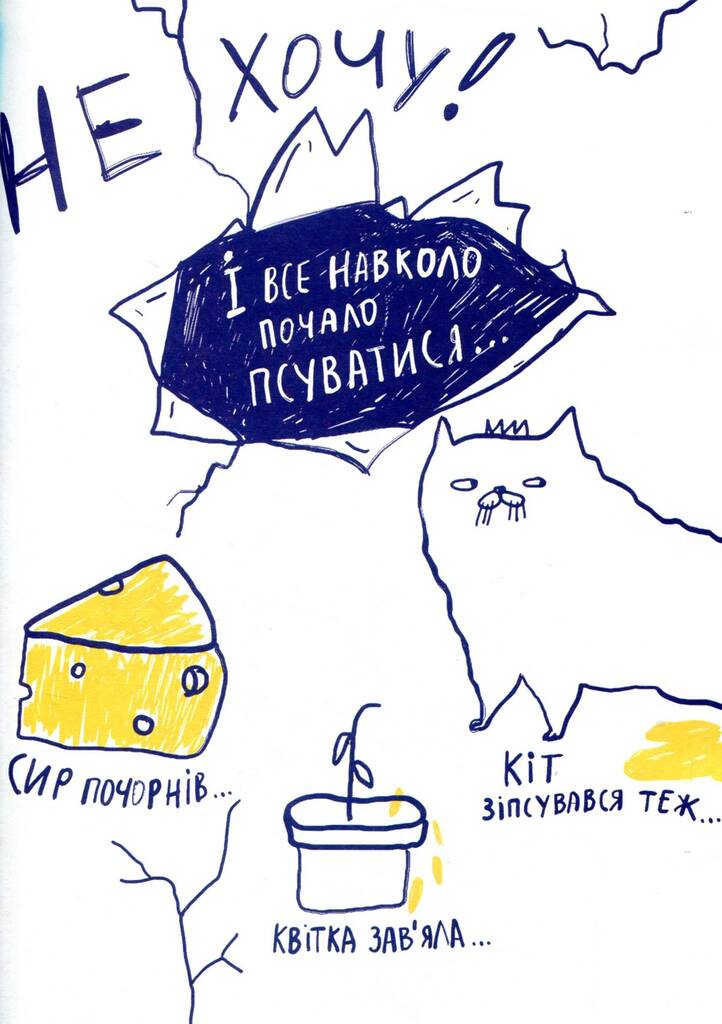 НЕ ХОЧУ!
І ВСЕ НАВКОЛО
ПОЧАЛО
ПСУВАТИСЯ...
СИР ПОЧОРНІВ...
КІТ
ЗІПСУВАВСЯ ТЕЖ...
КВІТКА ЗАВ'ЯЛА...